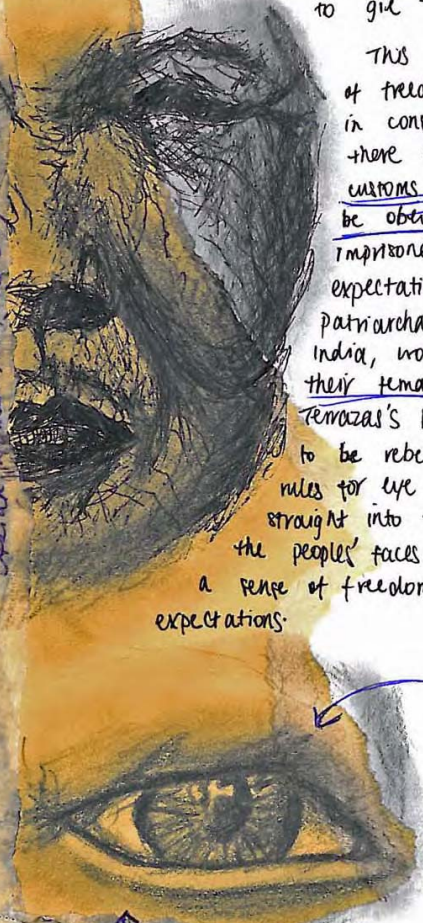 to give
This
of freed
in con
there
customs
be obe
imprisone
expectati
patriarcha
India, wo
their fema
Terrazas's
to be rebe
rules for eye
straight into
the peoples' faces
a sense of freedom
expectations.